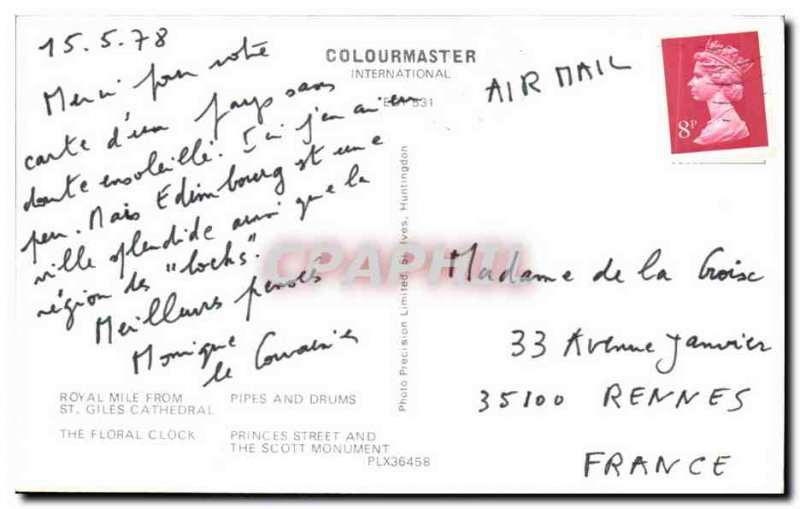 15.5.78
Merci pour votre
carte d'un pays sans
doute ensoleillé. Ici j'en ai eu
peu. Mais Edimbourg est une
ville splendide ainsi que la
région des "lochs".
Meilleures pensées
Monique
le
COLOURMASTER
INTERNATIONAL
531
AIR MAIL
8P
Photo Precision Limited, St. Ives, Huntingdon
CPAPHIL
Madame de la Croix
33 Avenue Janvier
35100 RENNES
FRANCE
ROYAL MILE FROM
ST. GILES CATHEDRAL
PIPES AND DRUMS
THE FLORAL CLOCK
PRINCES STREET AND
THE SCOTT MONUMENT
PLX36458